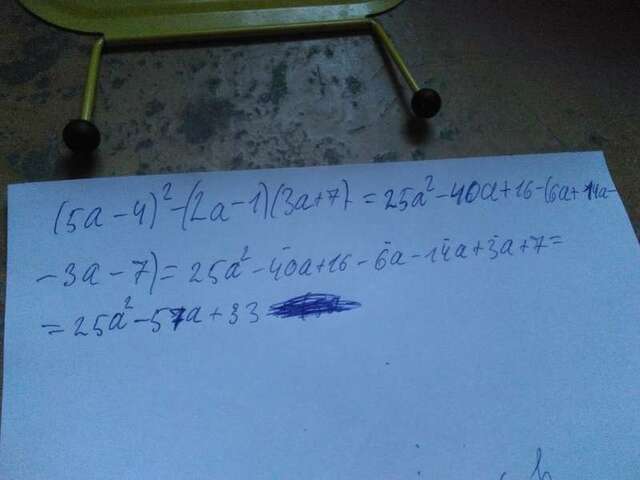 (5a - 4)² - (2a - 1)(3a + 7) = 25a² - 40a + 16 - (6a + 14a -
- 3a - 7) = 25a² - 40a + 16 - 6a - 14a + 3a + 7 =
= 25a² - 57a + 33